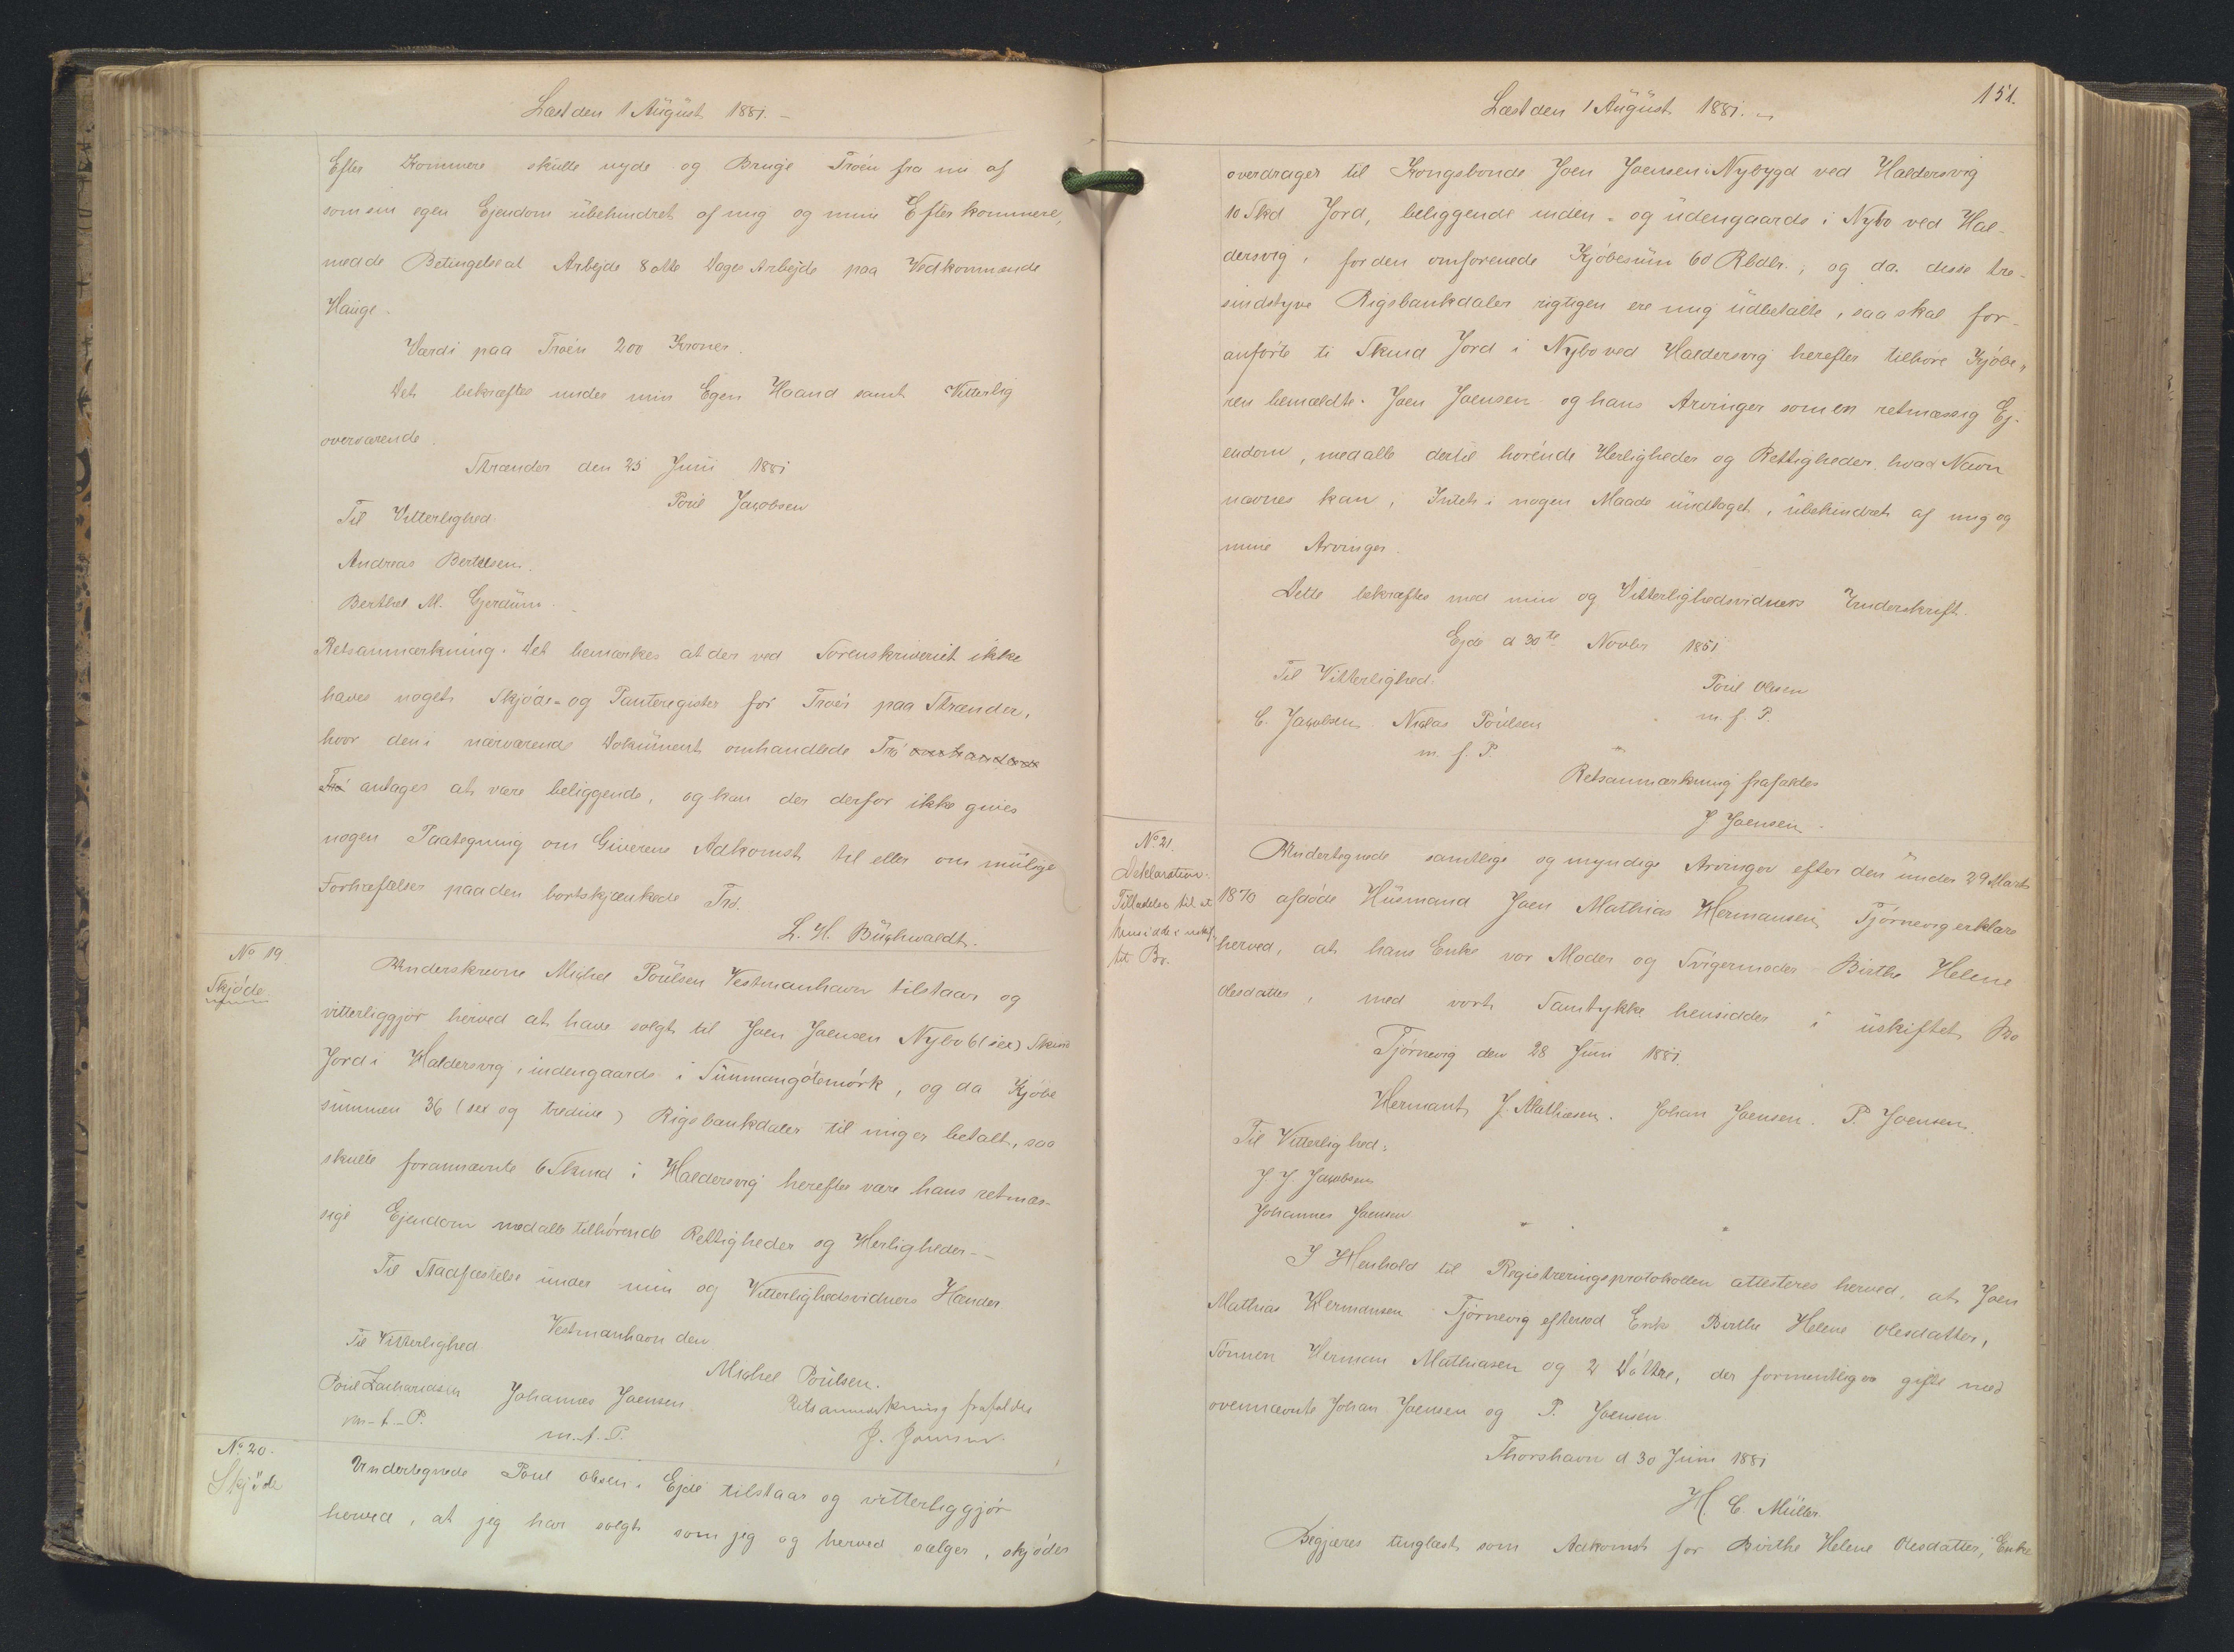 Læst den 1 August 1881. –
Efter Kommere skulle nyde og Bruge Troën fra nu af
som sin egen Ejendom ubehindret af mig og mine Efterkommere,
med de Betingelse at Arbejde 8 otte Dages Arbejde paa Vedkommende
Hauge.
Værdi paa Troën 200 Kroner.
Det bekræftes under min Egen Haand samt Vitterlig
overværende.
Strænder den 25 Juni 1881
Poul Jacobsen
Til Vitterlighed
Andreas Berthelsen.
Berthel M. Gjerdum.
Retsanmærkning. Det bemærkes at der ved Sorenskriveriet ikke
haves noget Skjøde- og Panteregister for Troër paa Strænder,
hvor den i nærværende Dokument omhandlede Trø omhandlede
Trø antages at være beliggende, og kan der derfor ikke gives
nogen Paategning om Giverens Adkomst til eller om mulige
Forhæftelser paa den bortskjænkede Trø.
L. H. Buchwaldt.
No 19.
Skjøde.
Underskrevne Michel Poulsen Vestmanhavn tilstaar og
vitterliggjør herved at have solgt til Joen Joensen Nybo 6 (sex) Skind
Jord i Haldersvig, indengaards i Summangøtemørk, og da Kjøbe
summen 36 (sex og tredive) Rigsbankdaler til mig er betalt, saa
skulle forannævnte 6 Skind i Haldersvig herefter være hans retmæs-
sige Ejendom med alle tilhørende Rettigheder og Herligheder. –
Til Stadfæstelse under min og Vitterlighedsvidners Hænder
Vestmanhavn den
Til Vitterlighed
Michel Poulsen.
Poul Zachariasen Johannes Joensen
Retsanmærkning frafaldes
m. f. P.
m. f. P.
J. Joensen.
No 20.
Skjøde
Undertegnede Poul Olesen, Ejde tilstaar og vitterliggjør
herved, at jeg har solgt som jeg og herved sælger, skjøder
151.
Læst den 1 August 1881. –
overdrager til Kongsbonde Joen Joensen i Nybygd ved Haldersvig
10 Skd Jord, beliggende inden- og udengaards i Nybo ved Hal-
dersvig, for den omforenede Kjøbesum 60 Rbdlr., og da disse tre-
sindstyve Rigsbankdaler rigtigen ere mig udbetalte, saa skal for-
anførte ti Skind Jord i Nybo ved Haldersvig herefter tilhøre Kjøbe-
ren bemældte Joen Joensen og hans Arvinger som en retmæssig Ej-
endom, med alle dertil hørende Herligheder og Rettigheder hvad Navn
nævnes kan, Intet i nogen Maade undtaget, ubehindret af mig og
mine Arvinger.
Dette bekræftes med min og Vitterlighedsvidners Underskrift.
Ejde d 30te Novbr 1851
Til Vitterlighed.
Poul Olesen
C. Jacobsen Niclas Poulsen
m. f. P.
m. f. P.
Retsanmærkning frafaldes
J Joensen.
No 21.
Deklaration.
Tilladelse til at
hensidde i uskif.
tet Bo.
Undertegnede samtlige og myndige Arvinger efter den under 29 Marts
1870 afdøde Husmand Joen Mathias Hermansen, Tjørnevig erklære
herved, at hans Enke vor Moder og Svigermoder Birthe Helene
Olesdatter, med vort Samtykke hensidder i uskiftet Bo
Tjørnevig den 28 Juni 1881.
Hermant J. Mathiasen. Johan Joensen. P. Joensen.
Til Vitterlighed:
J J Jacobsen
Johannes Joensen
I Henhold til Registreringsprotokollen attesteres herved, at Joen
Mathias Hermansen Tjørnevig efterlod Enke Birthe Helene Olesdatter,
Sønnen Herman Mathiasen og 2 Døttre, der formentlig er gifte med
ovennævnte Johan Joensen og P. Joensen
Thorshavn d 30 Juni 1881
H. C. Müller.
Begjæres tinglæst som Adkomst for Birthe Helene Olesdatter, Enke